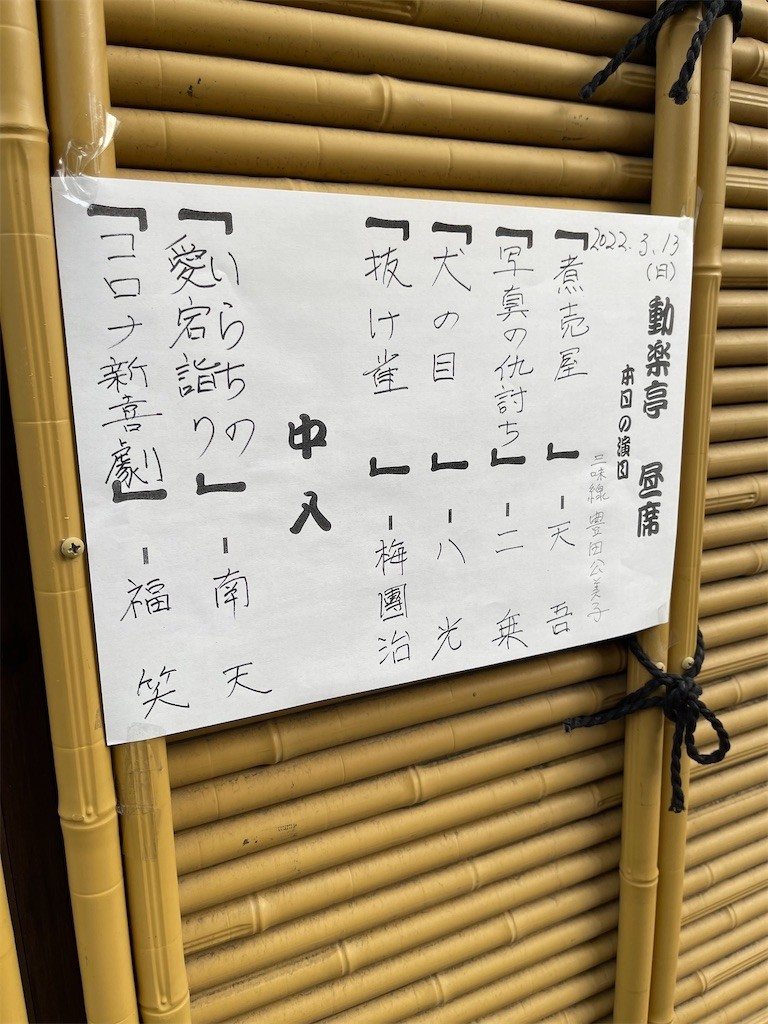 2022.3.13
(日)
動楽亭 昼席
本日の演目
三味線 豊田公美子
「煮売屋」-天吾
「写真の仇討ち」-二乗
「犬の目」-八光
「抜け雀」-梅團治
中入
「いらちの
愛宕詣り」-南天
「コロナ新喜劇」-福笑